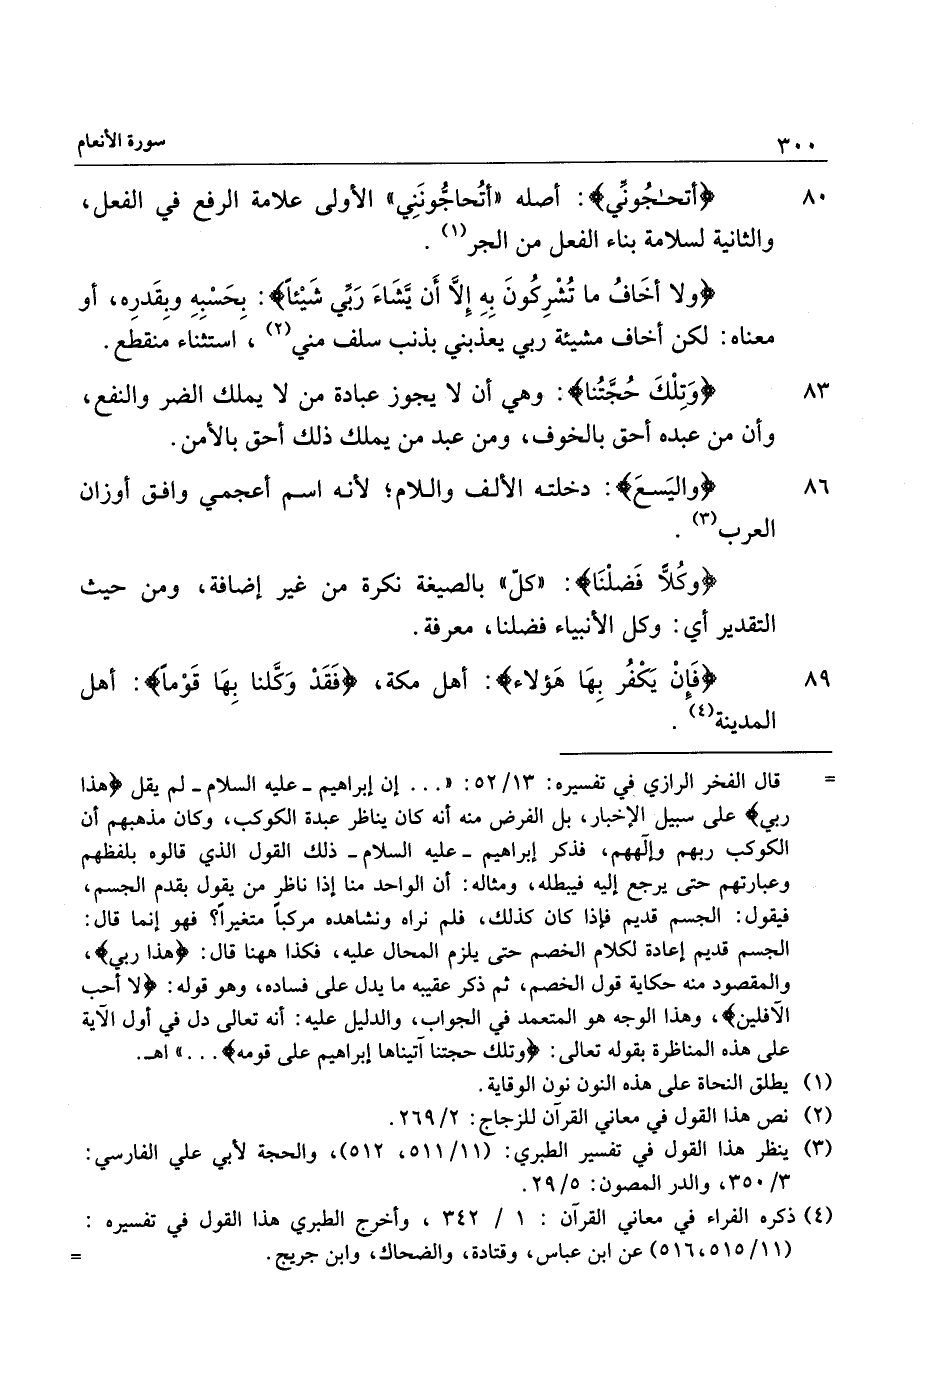 ٣٠٠ سورة الأنعام
٨٠ ﴿أتحـٰجُونِّي﴾: أصله «أتُحاجُّونَنِي» الأولى علامة الرفع في الفعل،
والثانية لسلامة بناء الفعل من الجر(١).
﴿ولا أخَافُ ما تُشْرِكُونَ بِهِ إِلاَّ أَن يَّشَاءَ رَبِّي شَيْئاً﴾: بِحَسْبِهِ وبِقَدرِه، أو
معناه: لكن أخاف مشيئة ربي يعذبني بذنب سلف مني(٢)، استثناء منقطع.
٨٣ ﴿وَتِلْكَ حُجَّتُنا﴾: وهي أن لا يجوز عبادة من لا يملك الضر والنفع،
وأن من عبده أحق بالخوف، ومن عبد من يملك ذلك أحق بالأمن.
٨٦ ﴿واليَسـعَ﴾: دخلتـه الألـف والـلام؛ لأنـه اسـم أعجمـي وافـق أوزان
العرب(٣).
﴿وكُلاًّ فَضلْنَا﴾: «كلّ» بالصيغة نكرة من غير إضافة، ومن حيث
التقدير أي: وكل الأنبياء فضلنا، معرفة.
٨٩ ﴿فَإِنْ يَكْفُر بِهَا هَؤلاء﴾: أهل مكة، ﴿فَقَدْ وَكَّلنا بِهَا قَوْماً﴾: أهل
المدينة(٤).
= قال الفخر الرازي في تفسيره: ٥٢/١٣: «... إن إبراهيم ـ عليه السلام ـ لم يقل ﴿هذا
ربي﴾ على سبيل الإخبار، بل الغرض منه أنه كان يناظر عبدة الكوكب، وكان مذهبهم أن
الكوكب ربهم وإلٰههم، فذكر إبراهيم ـ عليه السلام ـ ذلك القول الذي قالوه بلفظهم
وعبارتهم حتى يرجع إليه فيبطله، ومثاله: أن الواحد منا إذا ناظر من يقول بقدم الجسم،
فيقول: الجسم قديم فإذا كان كذلك، فلم نراه ونشاهده مركباً متغيراً؟ فهو إنما قال:
الجسم قديم إعادة لكلام الخصم حتى يلزم المحال عليه، فكذا ههنا قال: ﴿هذا ربي﴾،
والمقصود منه حكاية قول الخصم، ثم ذكر عقيبه ما يدل على فساده، وهو قوله: ﴿لا أحب
الآفلين﴾، وهذا الوجه هو المتعمد في الجواب، والدليل عليه: أنه تعالى دل في أول الآية
على هذه المناظرة بقوله تعالى: ﴿وتلك حجتنا آتيناها إبراهيم على قومه﴾...» اهـ.
(١) يطلق النحاة على هذه النون نون الوقاية.
(٢) نص هذا القول في معاني القرآن للزجاج: ٢٦٩/٢.
(٣) ينظر هذا القول في تفسير الطبري: (٥١١/١١، ٥١٢)، والحجة لأبي علي الفارسي:
٣٥٠/٣، والدر المصون: ٢٩/٥.
(٤) ذكره الفراء في معاني القرآن : ١ / ٣٤٢ ، وأخرج الطبري هذا القول في تفسيره :
(٥١٦،٥١٥/١١) عن ابن عباس، وقتادة، والضحاك، وابن جريج. =